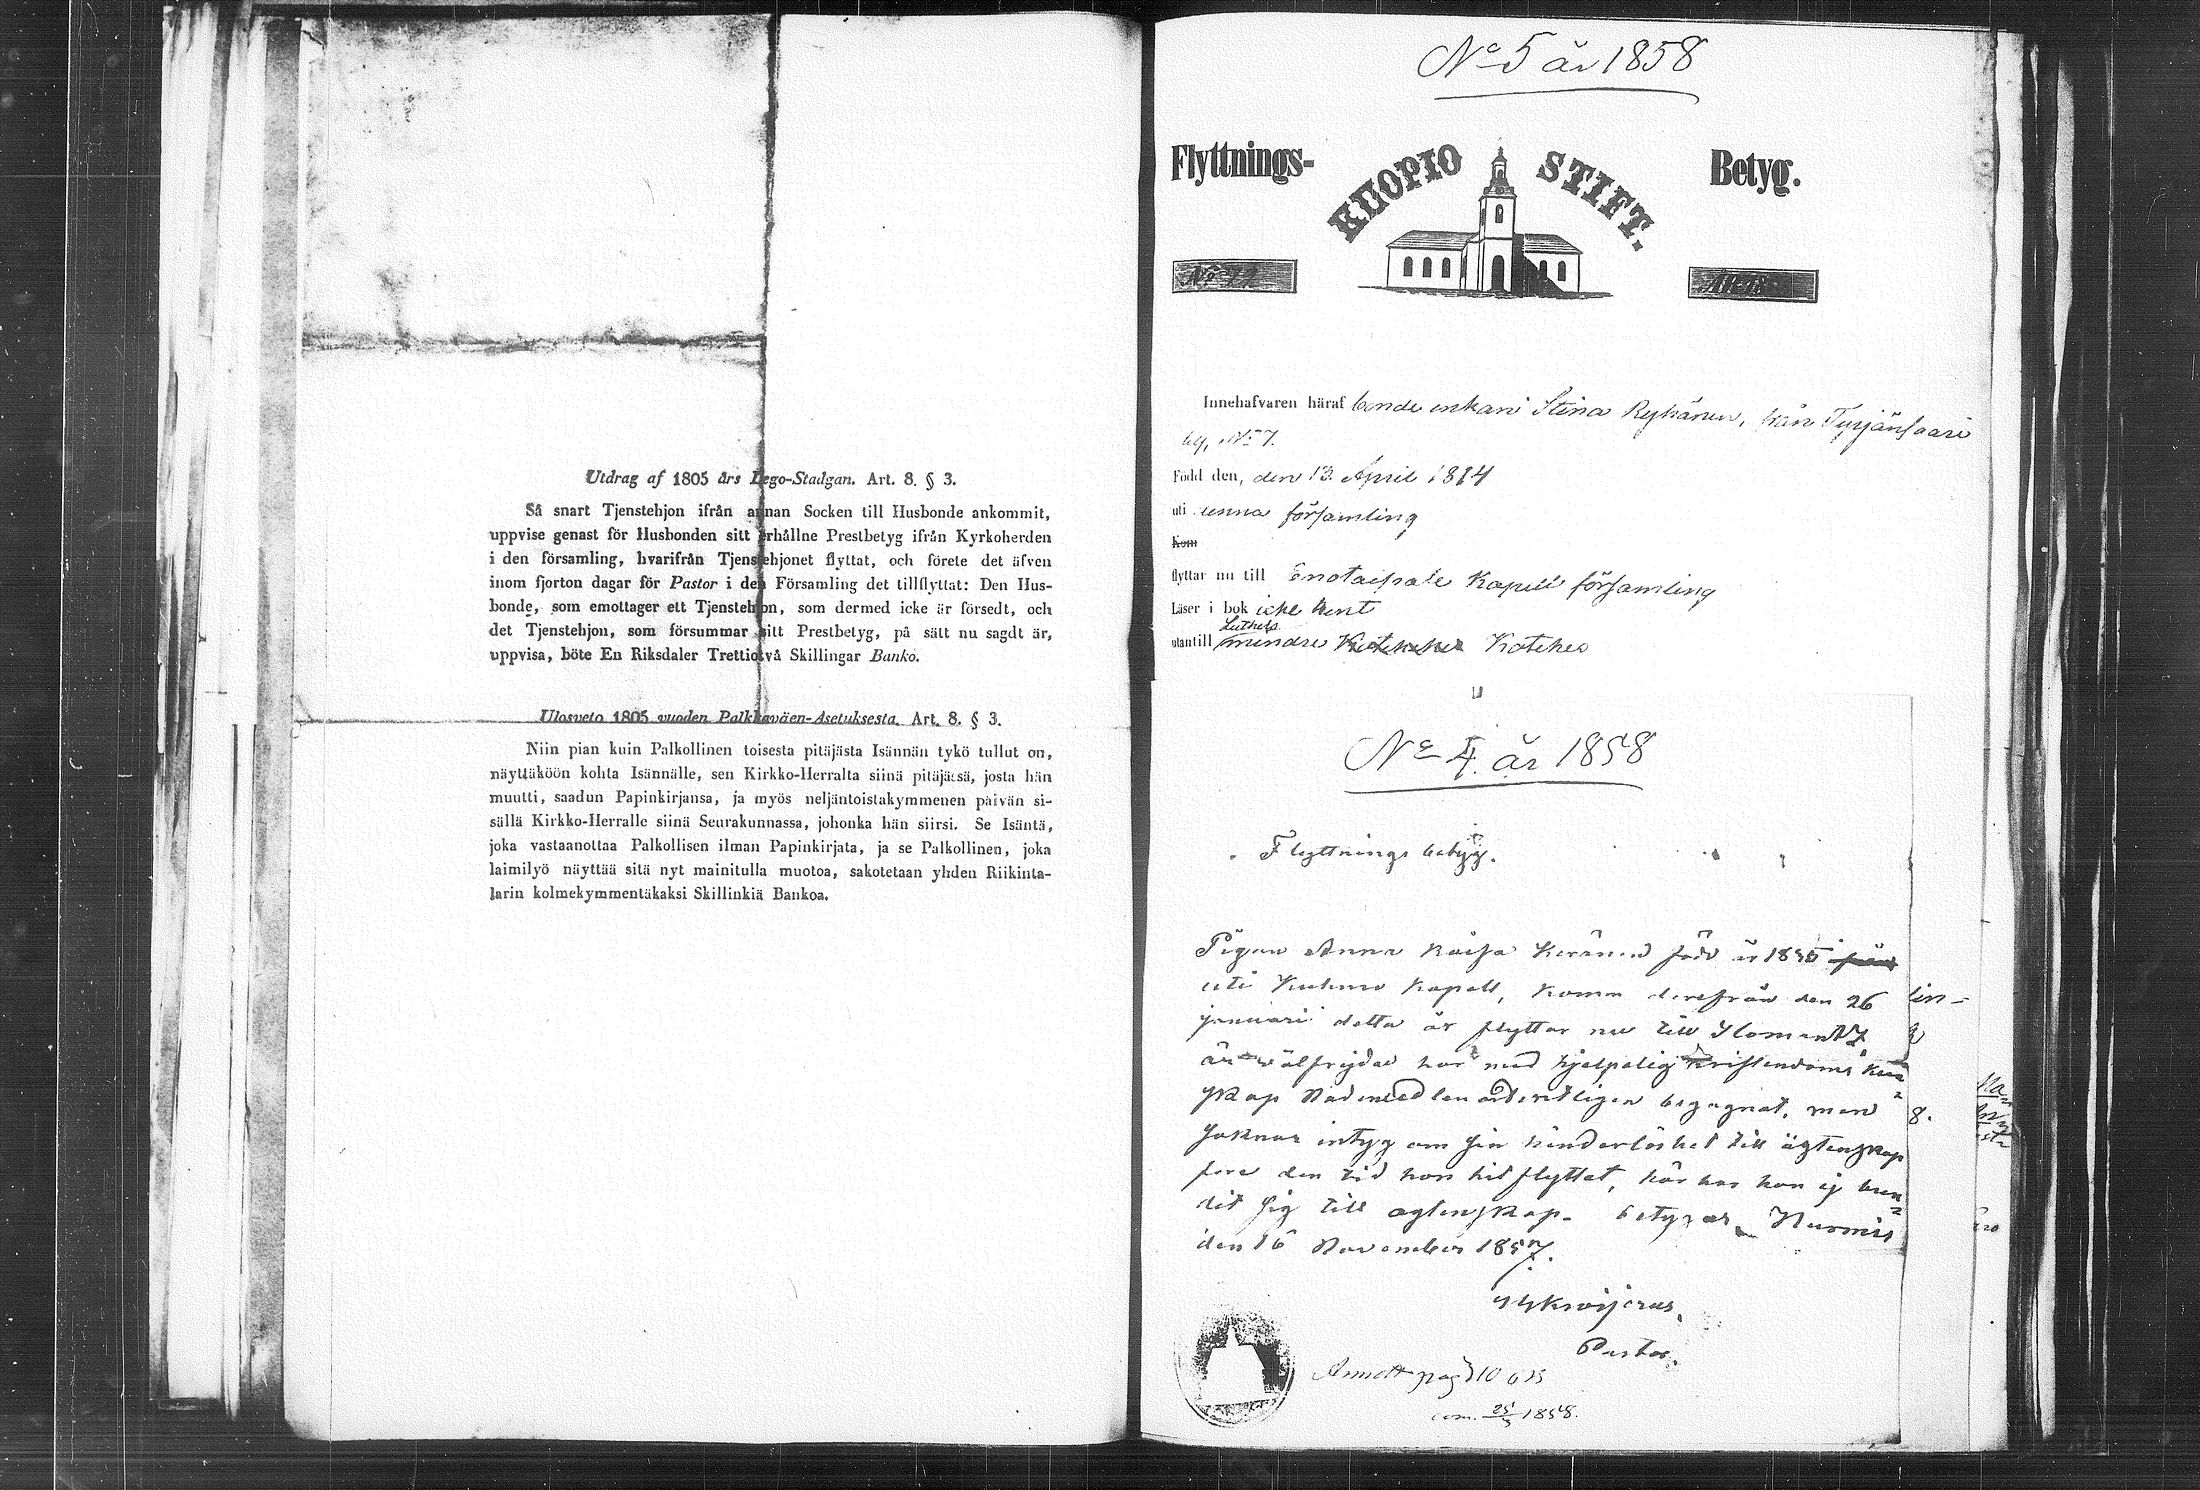 Utdrag af 1805 års Lego-Stadgan. Art. 8. § 3.
Så snart Tjenstehjon ifrån annan Socken till Husbonde ankommit,
uppvise genast för Husbonden sitt erhållne Prestbetyg ifrån Kyrkoherden
i den församling, hvarifrån Tjenstehjonet flyttat, och förete det äfven
inom fjorton dagar för Pastor i den Församling det tillflyttat: Den Hus-
bonde, som emottager ett Tjenstehjon, som dermed icke är försedt, och
det Tjenstehjon, som försummar sitt Prestbetyg, på sätt nu sagdt är,
uppvisa, böte En Riksdaler Trettiotvå Skillingar Banko.
Ulosveto 1805 vuoden Palkkaväen-Asetuksesta. Art. 8. § 3.
Niin pian kuin Palkollinen toisesta pitäjästä Isännän tykö tullut on,
näyttäköön kohta Isännälle, sen Kirkko-Herralta siinä pitäjässä, josta hän
muutti, saadun Papinkirjansa, ja myös neljäntoistakymmenen päivän si-
sällä Kirkko-Herralle siinä Seurakunnassa, johonka hän siirsi. Se Isäntä,
joka vastaanottaa Palkollisen ilman Papinkirjata, ja se Palkollinen, joka
laimilyö näyttää sitä nyt mainitulla muotoa, sakotetaan yhden Riikinta-
larin kolmekymmentäkaksi Skillinkiä Bankoa.
No 5 år 1858
Flyttnings- KUOPIO STIFT. Betyg.
Innehafvaren häraf bonde enkan Stina Ryhänen, från Tyrjänsaari
by, No 7.
Född den, den 13 April 1814
uti denna församling
Kom
flyttar nu till Enotaipale Kapell församling
Läser i bok icke lärdt
Luthers
utantill mindre Katekes
No 4. år 1858
Flyttnings betyg.
Pigan Anna Kaisa Keränen född år 1835
uti Kuhmo Kapell, komm derefrån den 26
januari detta år flyttar nu till Ilomants
är välfrejdad har med hjelpelig kristendoms kun
skap Nademedlen ordentligen begagnat, men
saknar intyg om sin hinderlöshet till ägtenskap
före den tid hon hit flyttat, här har hon ej bun
dit sig till ägtenskap. betygar Nurmis
den 16 November 1857.
Pastor.
Annott pag 310
25/3 1858.